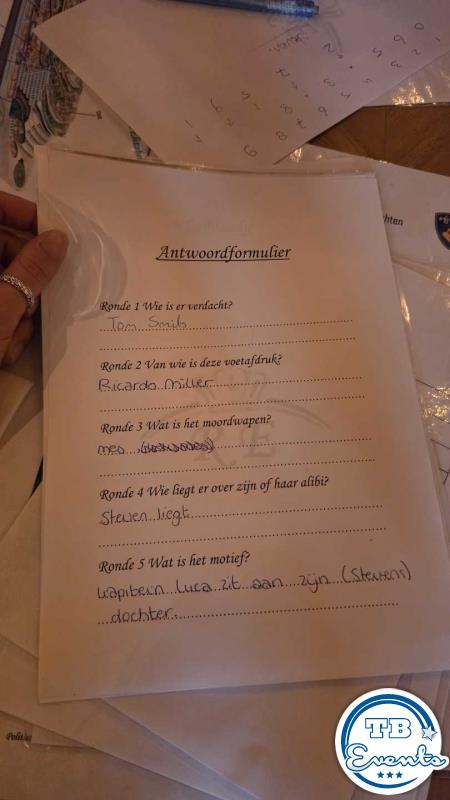 Antwoordformulier
Ronde 1 Wie is er verdacht?
Tom Smits
Ronde 2 Van wie is deze voetafdruk?
Ricardo Miller
Ronde 3 Wat is het moordwapen?
mes
Ronde 4 Wie liegt er over zijn of haar alibi?
Steven liegt
Ronde 5 Wat is het motief?
kapitein luca zit aan zijn (Stevens)
dochter.
TB
Events